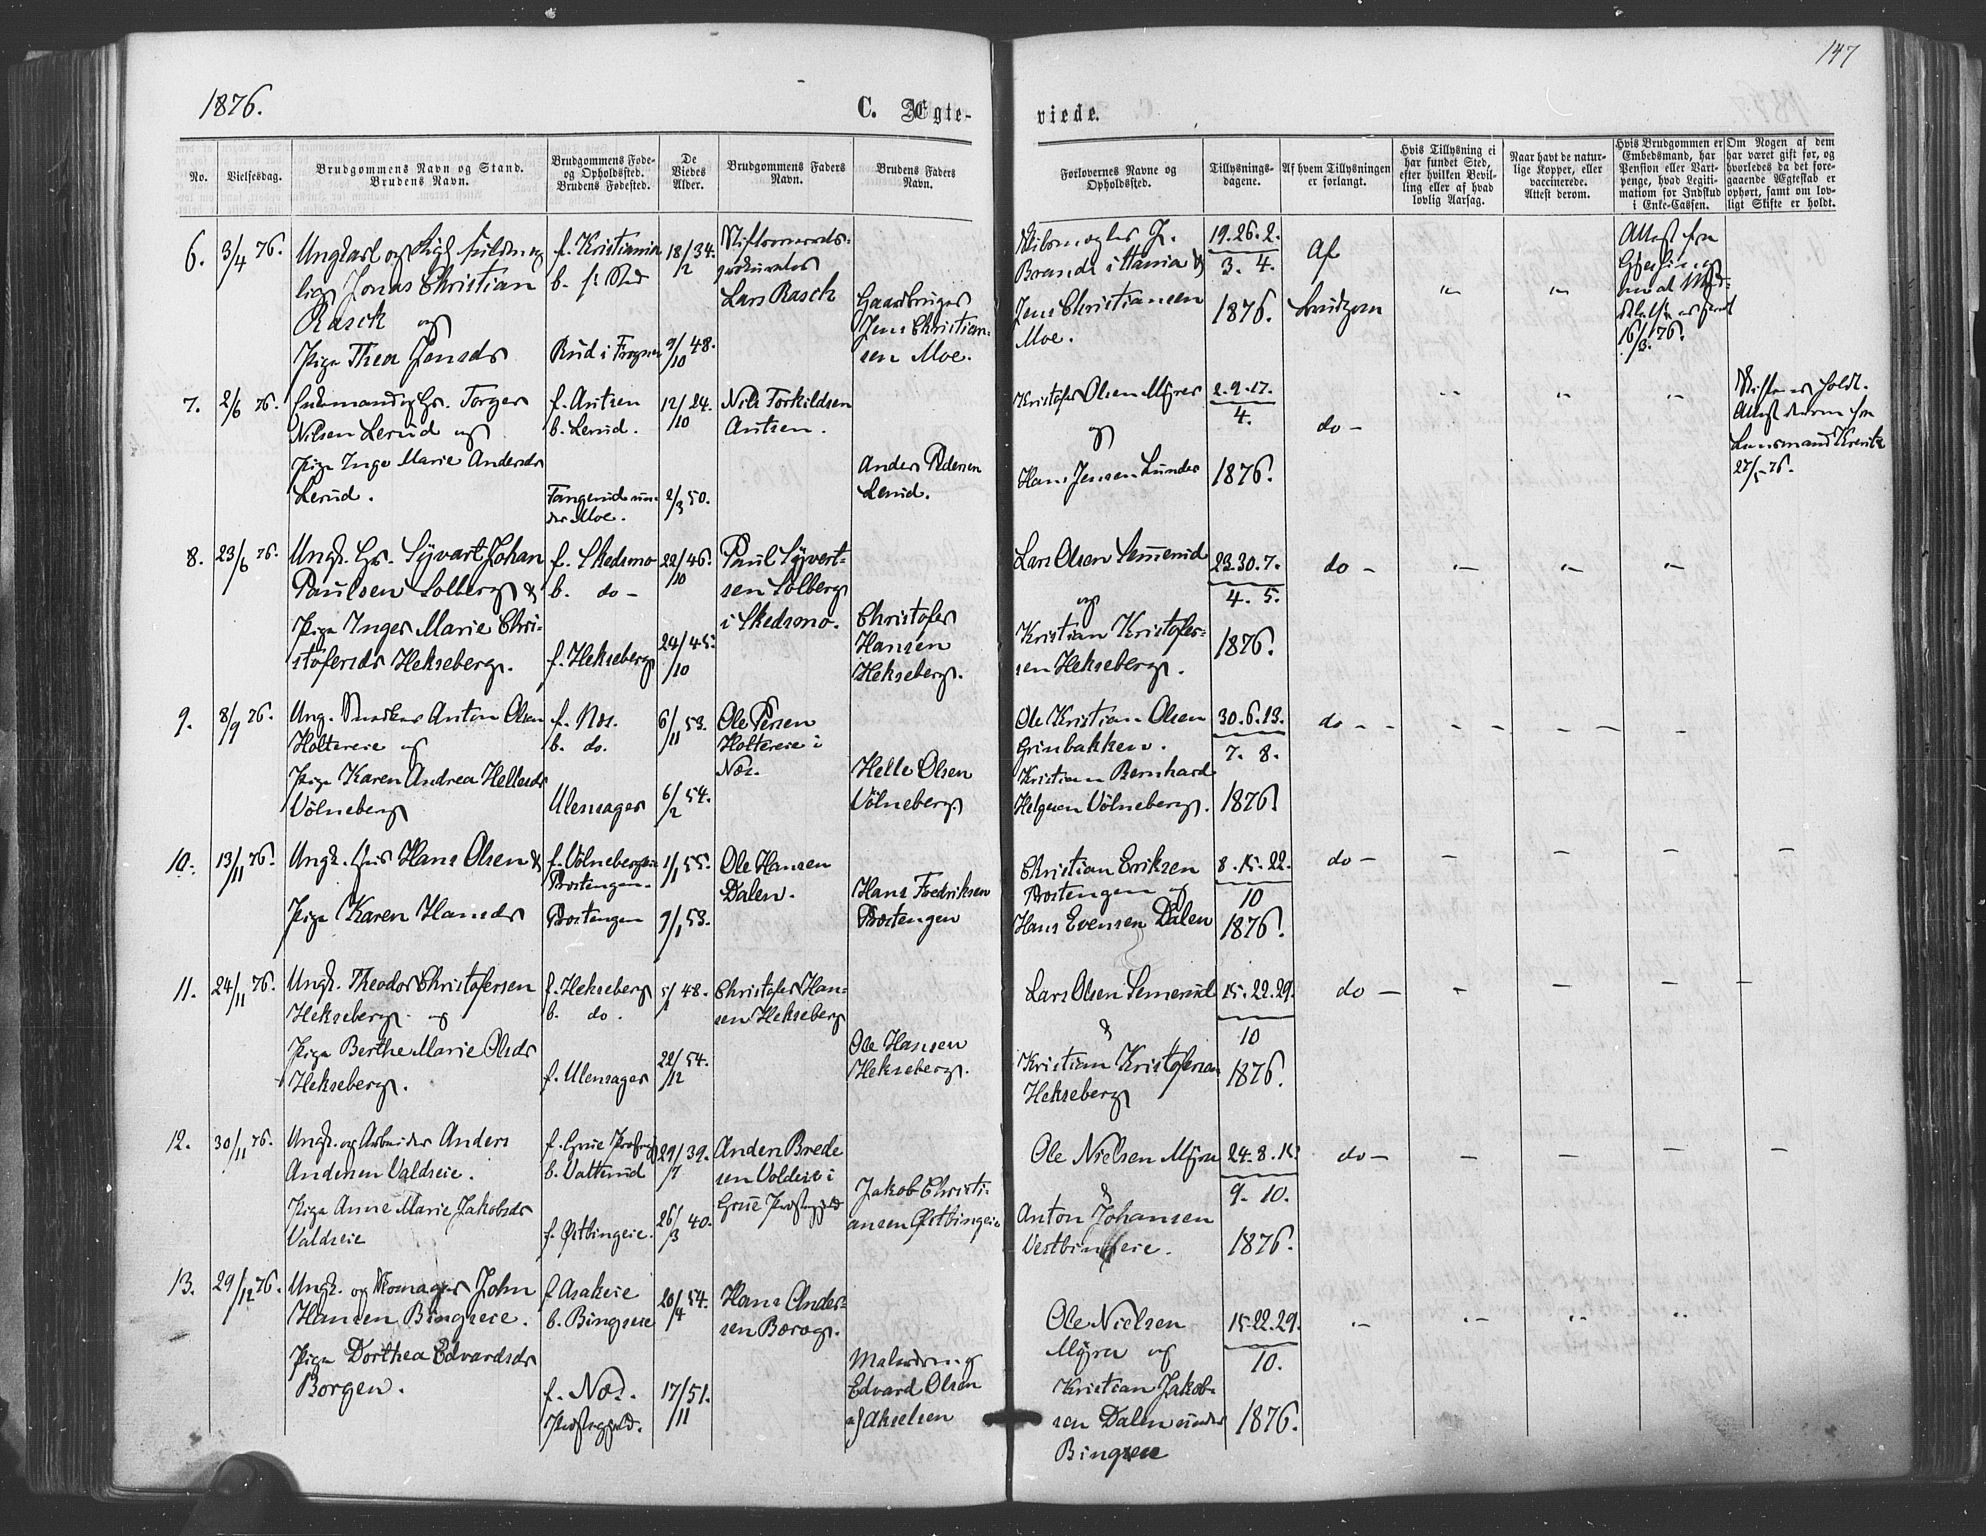 147
1876.
C. Ægte-
viede.
No.
Vielsesdag.
Brudgommens Navn og Stand.
Brudens Navn.
Brudgommens Føde-
og Opholdssted.
Brudens Fødested.
De
Viedes
Alder.
Brudgommens Faders
Navn.
Brudens Faders
Navn.
Forlovernes Navne og
Opholdssted.
Tillysnings-
dagene.
Af hvem Tillysningen
er forlangt.
Hvis Tillysning ei
har fundet Sted,
efter hvilken Bevil-
ling eller af hvad
lovlig Aarsag.
Naar havt de natur-
lige Kopper, eller
vaccinerede.
Attest derom.
Hvis Brudgommen er
Embedsmand, har
Pension eller Vart-
penge, hvad Legiti-
mation for Indskud
i Enke-Cassen.
Om Nogen af dem
har været gift før, og
hvorledes da det fore-
gaaende Ægteskab er
ophørt, samt om lov-
ligt Skifte er holdt.
6.
3/4 76.
Ungkarl og
Jonas Christian
Rasck og
Pige Thea Jensdr
f. Kristiania
b.
Rud i Frogner
18/2 34.
9/10 48.
Lars Rasck
Gaardbruger
Jens Christian-
sen Moe.
Brandt i
Jens Christiansen
Moe.
19. 26. 2.
3. 4.
1876.
Af
Brudgom
"
"
Attest fra
16/3 76.
7.
2/6 76.
Enkemand og Gr. Torger
Nilsen Lerud og
Pige Inge Marie Andersdr
Lerud.
f. Autsen
b. Lerud.
Tangerud un-
der Moe.
12/10 24.
2/3 50.
Nils Torkildsen
Autsen.
Anders Pedersen
Lerud.
Kristofer Olsen Myrer
og
Hans Jensen Lunder
2. 9. 17.
4.
1876.
do -
"
"
"
Skiftet er holdt.
Attest derom fra
Lensmand
27/5 76.
8.
23/6 76.
Ungk. Gr. Syvart Johan
Paulsen Solberg &
Pige Inger Marie Chri-
stofersdr Hekseberg.
f. Skedsmo
b. do -
f. Hekseberg
22/10 46.
24/10 45.
Paul Syvert-
sen Solberg
i Skedsmo.
Christofer
Hansen
Hekseberg.
Lars Olsen Semerud
og
Kristian Kristofer-
sen Hekseberg.
23. 30. 7.
4. 5.
1876.
do -
"
"
"
9.
8/9 76.
Ung. Snedker Anton Olsen
Holtereie og
Pige Karen Andrea Hellesdr
Völneberg
f. Næs.
b. do.
Ulensager
6/11 53.
6/2 54.
Ole Persen
Holtereie i
Næs.
Helle Olsen
Völneberg.
Ole Kristian Olsen
Grinbakken.
Kristian Bernhard
Helgesen Völneberg.
30. 6. 13.
7. 8.
1876.
do - - - - - - -
10.
13/11 76.
Ungk. Hans Olsen &
Pige Karen Hansdr
f. Völnebergeie
Prestengen.
Prestengen
1/1 55.
9/1 53.
Ole Hansen
Dalen.
Hans Fredriksen
Prestengen
Christian Eriksen
Prestengen og
Hans Evensen Dalen
8. 15. 22.
10
1876.
do - - - - -
11.
24/11 76.
Ungk. Theodor Christofersen
Hekseberg. og
Pige Berthe Marie Olsdr
Hekseberg.
f. Hekseberg
b. do.
f. Ulensager
5/1 48.
22/12 54.
Christofer Han-
sen Hekseberg
Ole Hansen
Hekseberg.
Lars Olsen Semerud
&
Kristian Kristofersen
Hekseberg
15. 22. 29.
10
1876.
do - - - - -
12.
30/11 76.
Ungk. og Arbeider Anders
Andersen Valdseie.
Pige Anne Marie Jakobsdr
Valdseie
f. Grue Prestegj.
b. Valterud
f. Østbingeie.
29/7 39.
26/3 40.
Anders Brede
sen Voldeie i
Grue Prestegjeld
Jakob Christi-
ansen Østbingeie
Ole Nielsen Myrer
&
Anton Johansen
Vestbingeie.
24. 8. 15.
9. 10.
1876.
do - - - - -
13.
29/12 76.
Ungk. og Skomager John
Hansen Bingseie.
Pige Dorthea Edvardsdr
Borgen.
f. Asakeie
b. Bingseie
f. Næs.
Prestegjeld.
20/4 54.
17/11 51.
Hans Ander-
sen Borog.
Edvard Olsen
af Akselsen
Ole Nielsen
Myrer og
Kristian Jakob-
sen Dalen under
Bingseie
15. 22. 29.
10.
1876.
"
"
"
"